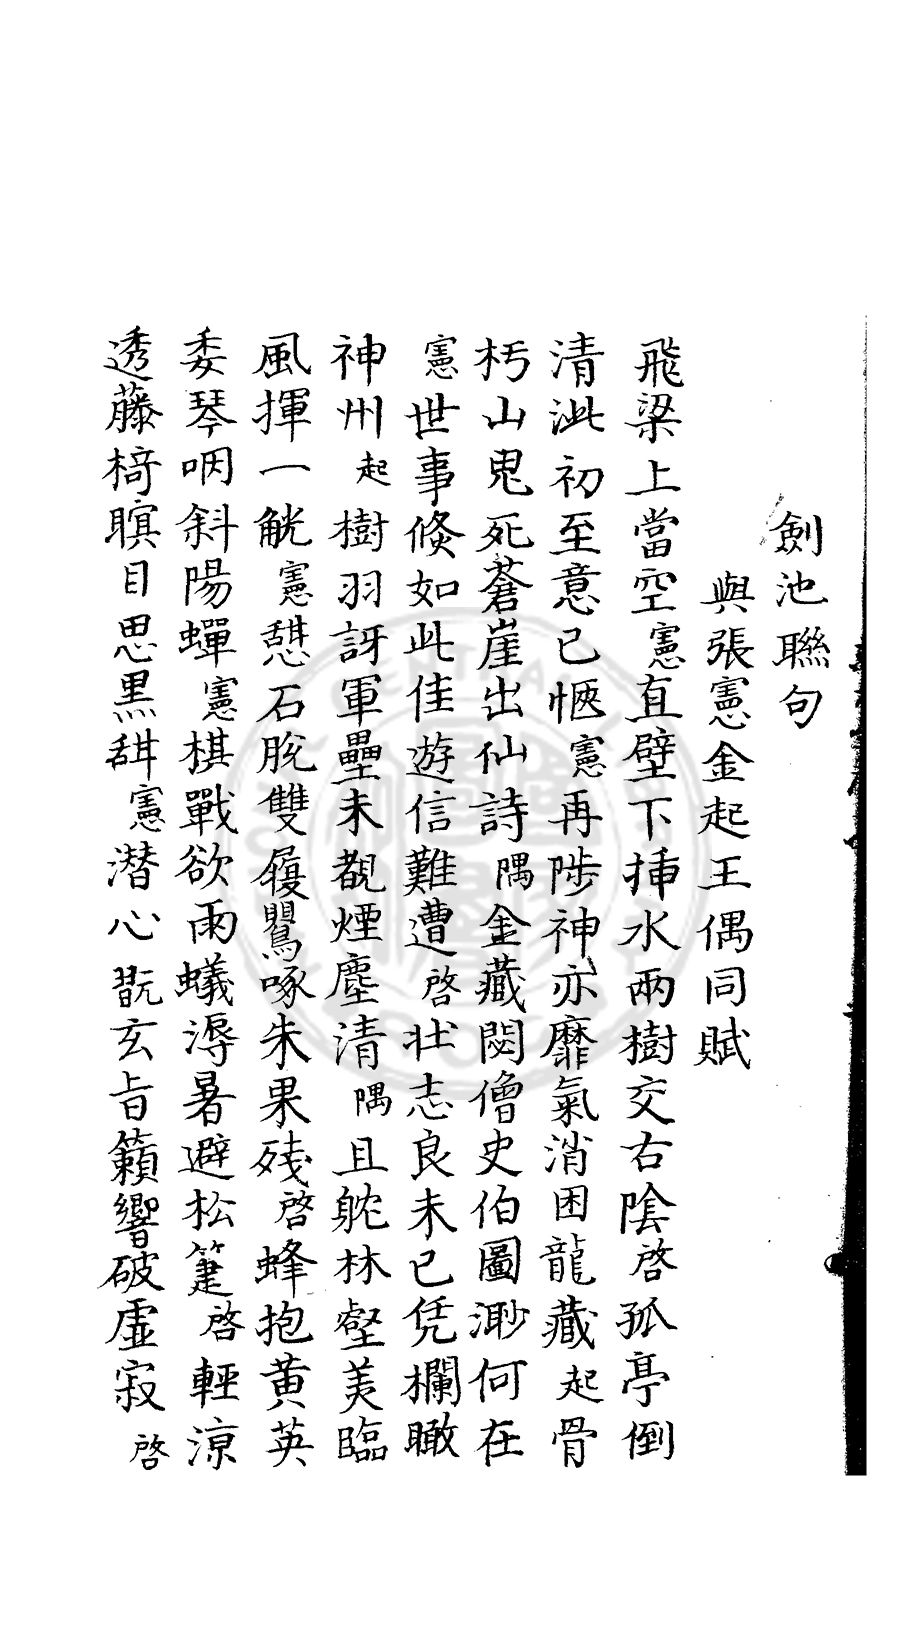 劍池聯句
與張憲金起王偶同賦
飛梁上當空憲直壁下揷水兩樹交右陰啓孤亭倒
清泚初至意已愜憲再陟神亦靡氣消困龍藏起骨
朽山鬼死蒼崖出仙詩隅金藏閟僧史伯圖渺何在
憲世事倐如此佳遊信難遭啓壮志良未已凭欄瞰
神州起樹羽訝軍壘未覩煙塵清隅且躭林壑美臨
風揮一觥憲憇石脫雙履鸎啄朱果殘啓蜂抱黃英
委琴咽斜陽蟬憲棋戰欲雨蟻溽暑避松䈎啓輕凉
透藤椅瞑目思黒甜憲潜心翫玄旨籟響破虛寂啓